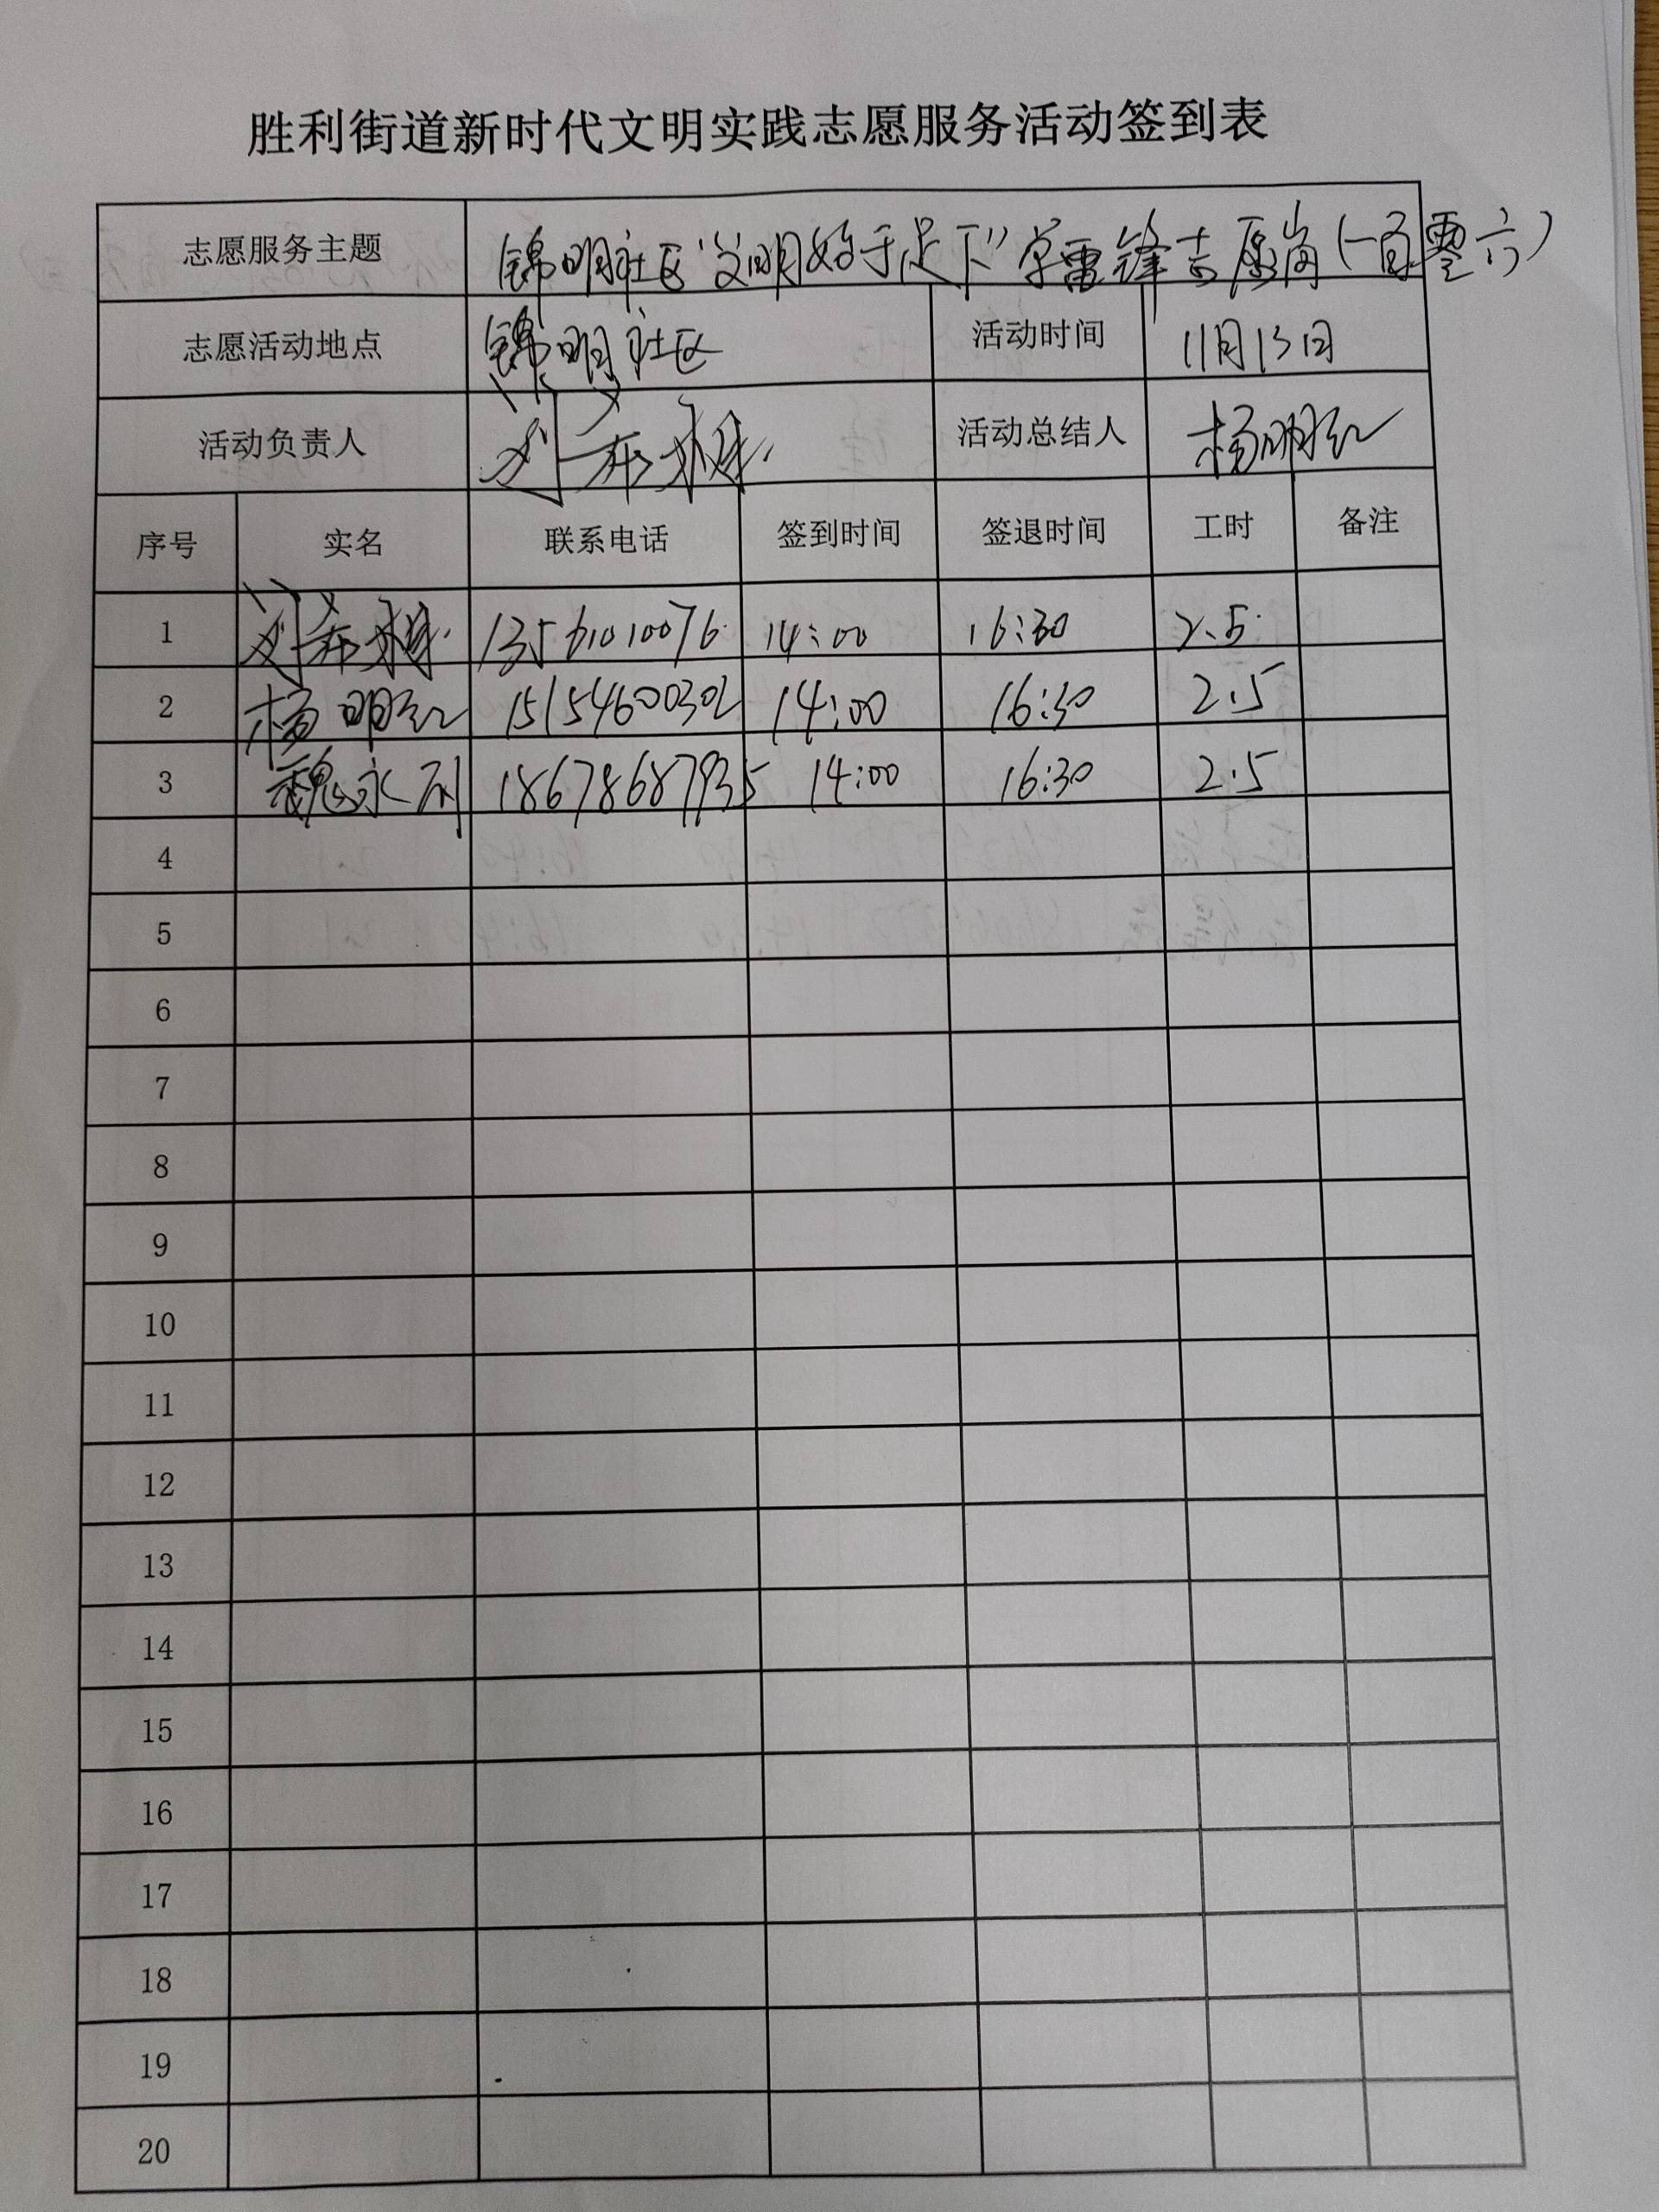 胜利街道新时代文明实践志愿服务活动签到表
志愿服务主题 锦明社区“文明始于足下”学雷锋志愿岗(一百零六)
志愿活动地点 锦明社区 活动时间 11月13日
活动负责人 刘 活动总结人 杨明红
序号 实名 联系电话 签到时间 签退时间 工时 备注
1 刘 13561010076 14:00 16:30 2.5
2 杨明红 15154600302 14:00 16:30 2.5
3 魏永刚 18678687935 14:00 16:30 2.5
4
5
6
7
8
9
10
11
12
13
14
15
16
17
18
19
20